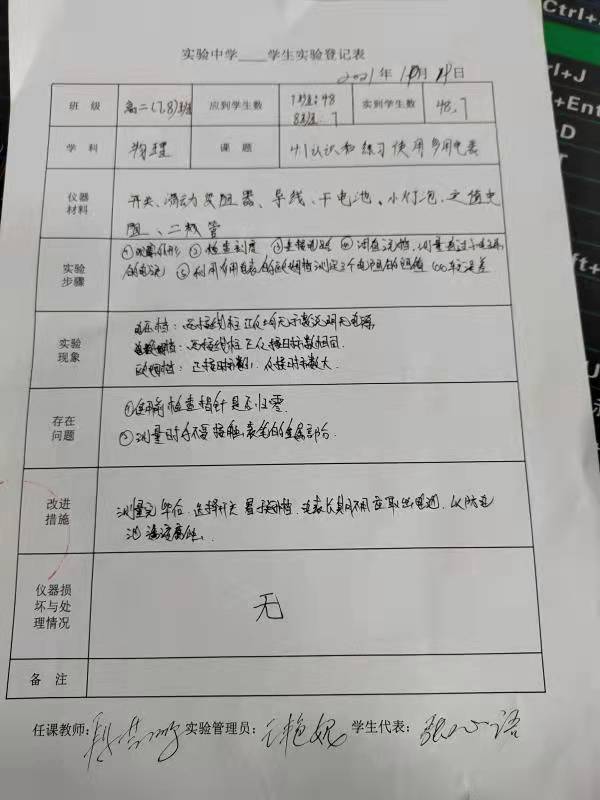 实验中学____学生实验登记表
2021年 月 日
班 级 高二(7,8)班 应到学生数 7班:48 8班: 7 实到学生数 48,7
学 科 物理 课 题 认识和练习使用多用电表
仪器材料 开关、滑动变阻器、导线、干电池、小灯泡、定值电
阻、二极管
实验步骤 ①观察外形 ②检查刻度 ③连接电路 ④调在电流档,测量通过小灯泡
的电流 ⑤利用多用电表的欧姆档测定三个电阻的阻值
实验现象 电压档:两接线柱正反均无示数说明无电源
两接线柱正反接时示数相同.
欧姆档:正接时示数小,反接时示数大.
存在问题 ①使用前检查指针是否归零
②测量时手不要接触表笔的金属部分.
改进措施 测量完毕后,选择开关置于 档,电表长期不用应取出电池,以防电
池漏液腐蚀.
仪器损坏与处理情况 无
备 注
任课教师: 实验管理员: 学生代表:张心语